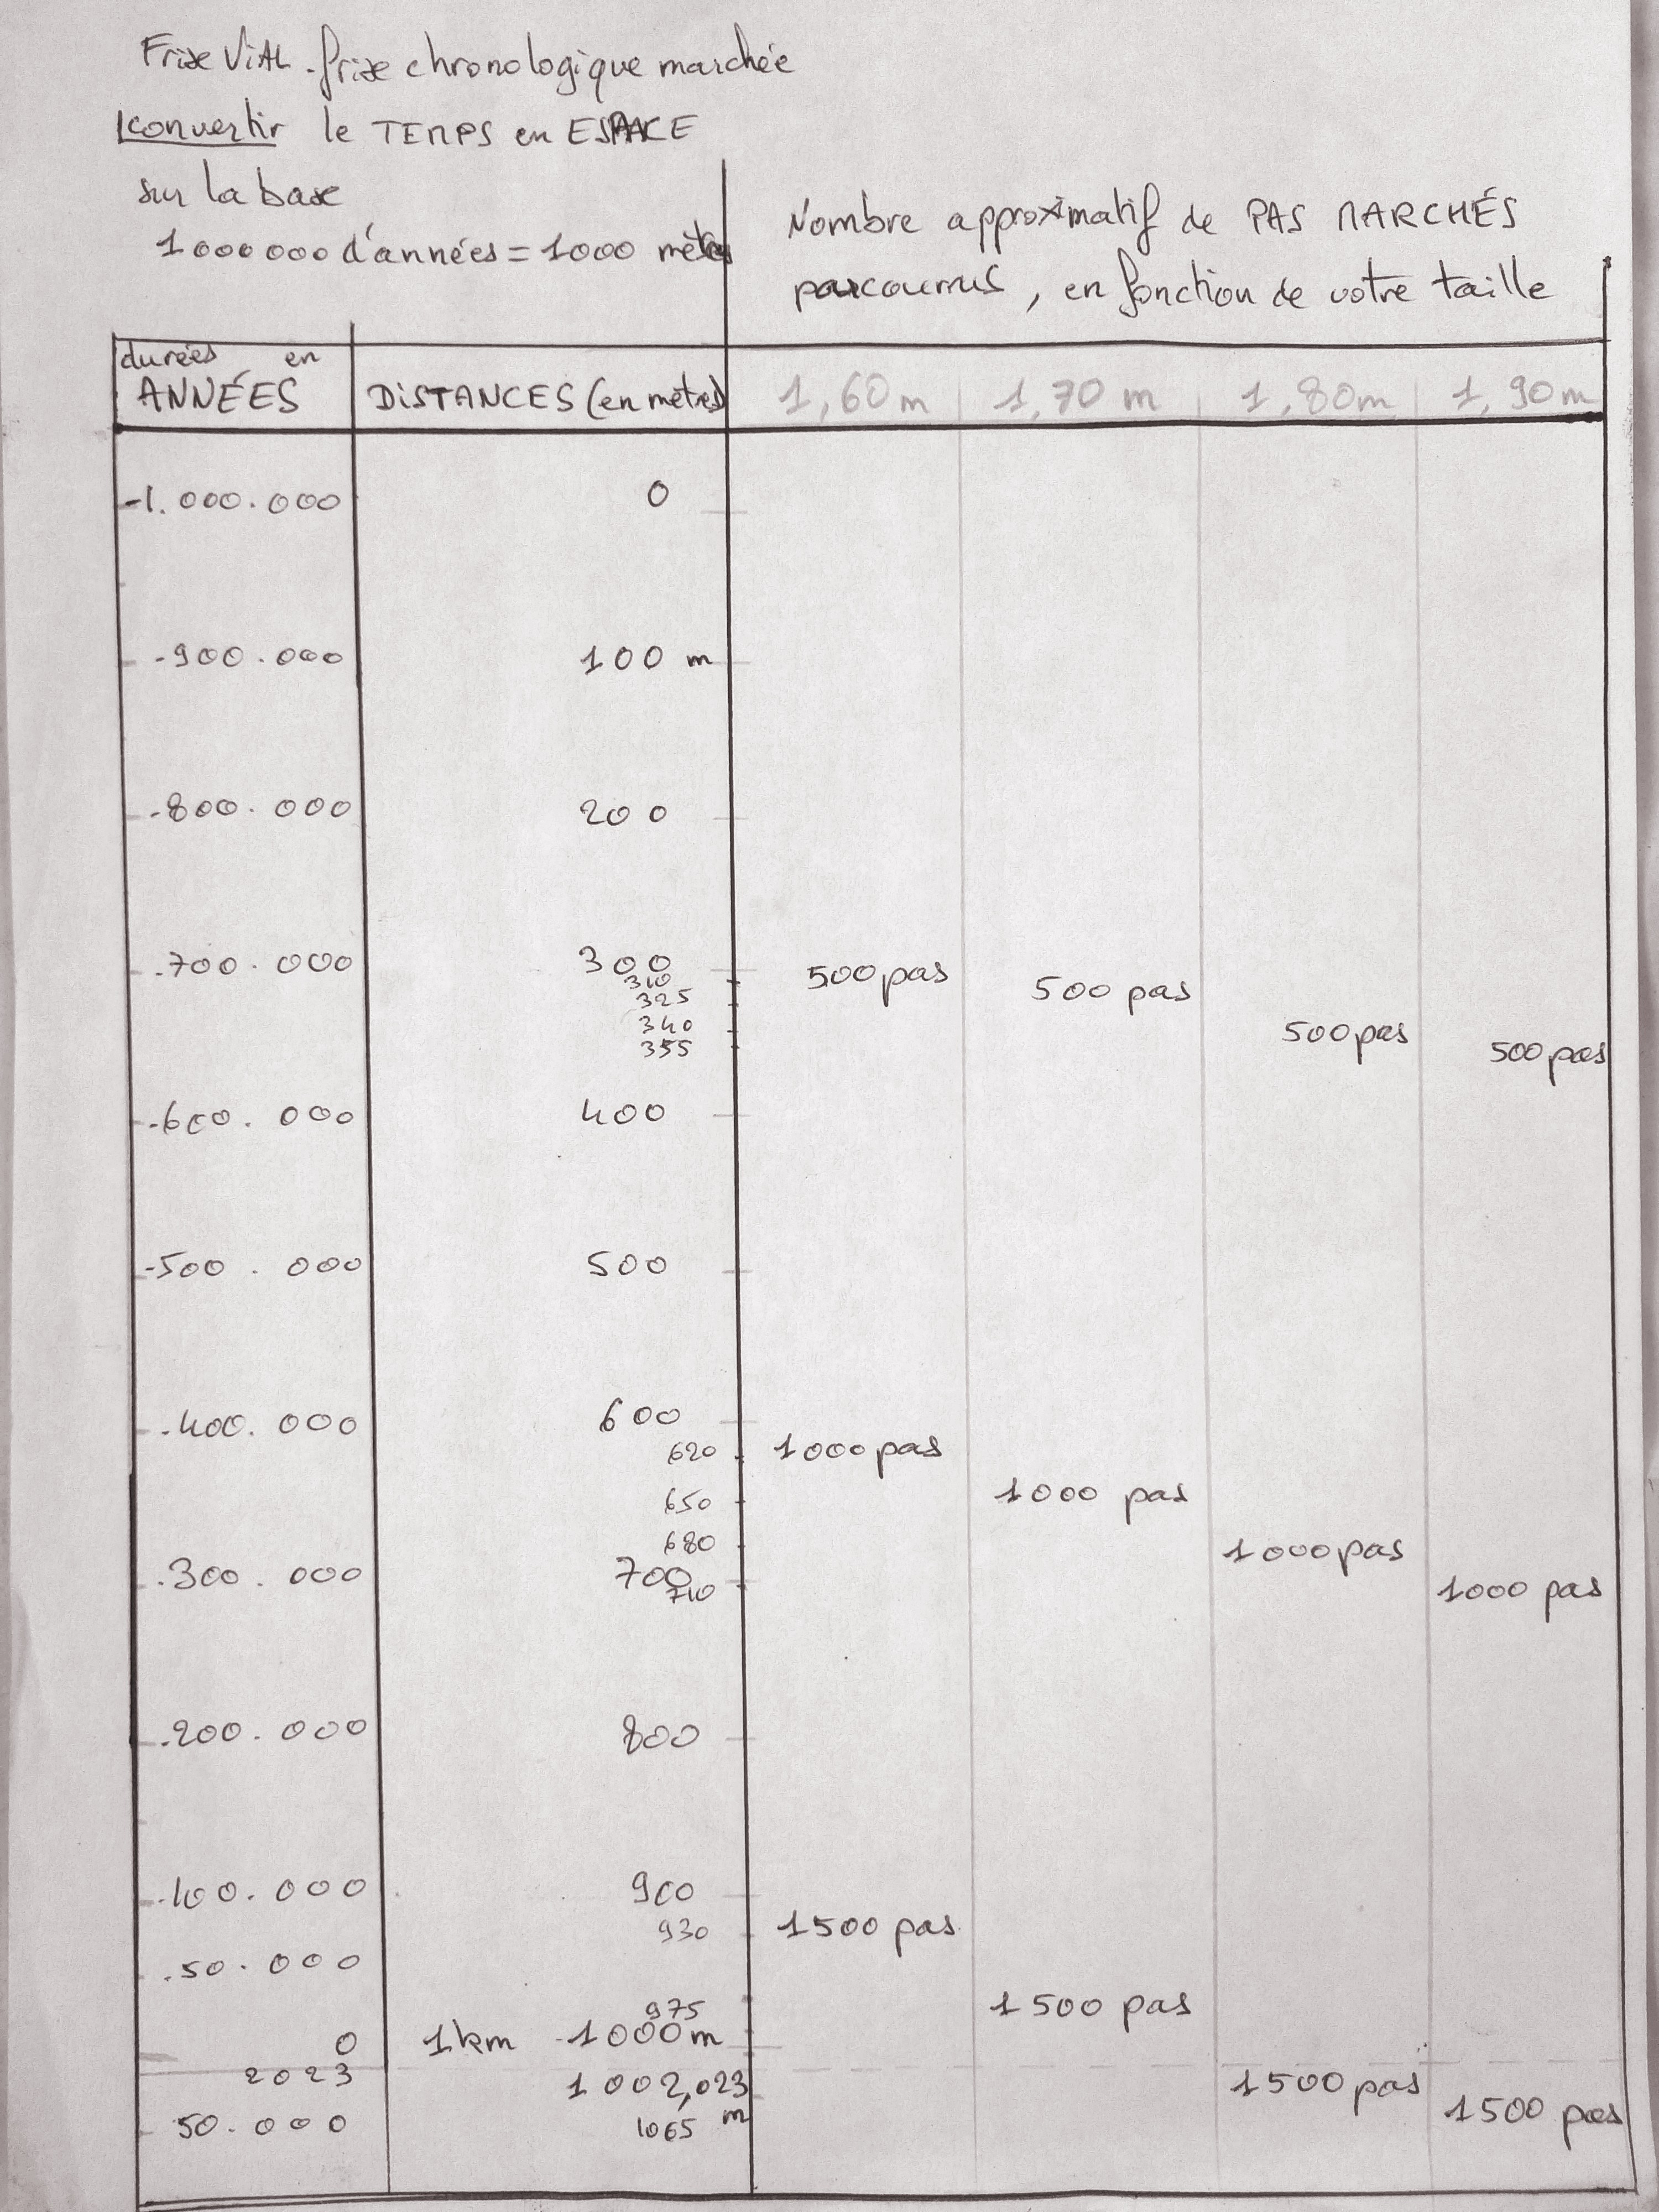 Frise ViAL - frise chronologique marchée
convertir le TEMPS en ESPACE
sur la base
1 000 000 d'années = 1000 mètres
Nombre approximatif de PAS MARCHÉS
parcourus, en fonction de votre taille
durées en
ANNÉES DiSTANCES (en mètres) 1,60m 1,70 m 1,80m 1,90m
-1.000.000 0
-900.000 100 m
-800.000 200
-700.000 300 500 pas
310
325 500 pas
340 500 pas
355 500 pas
-600.000 400
-500.000 500
-400.000 600
620 1000 pas
650 1000 pas
680 1000 pas
-300.000 700
710 1000 pas
-200.000 800
-100.000 900
930 1500 pas
-50.000
975 1500 pas
0 1km -1000m
2023 1002,023 m 1500 pas
50.000 1065 1500 pas